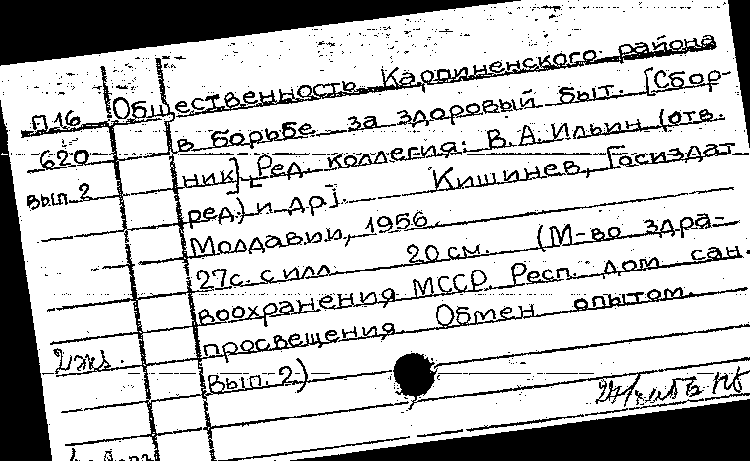 П16 Общественность Карпиненского района
620 в борьбе за здоровый быт. [Сбор-
вып. 2 ник] [Ред. коллегия: В.А. Ильин (отв.
ред.) и др]. Кишинев, Госиздат
Молдавии, 1956.
27с. с илл. 20 см. (М-во здра-
воохранения МССР. Респ. дом сан.
просвещения Обмен опытом.
2 экз.
вып. 2)